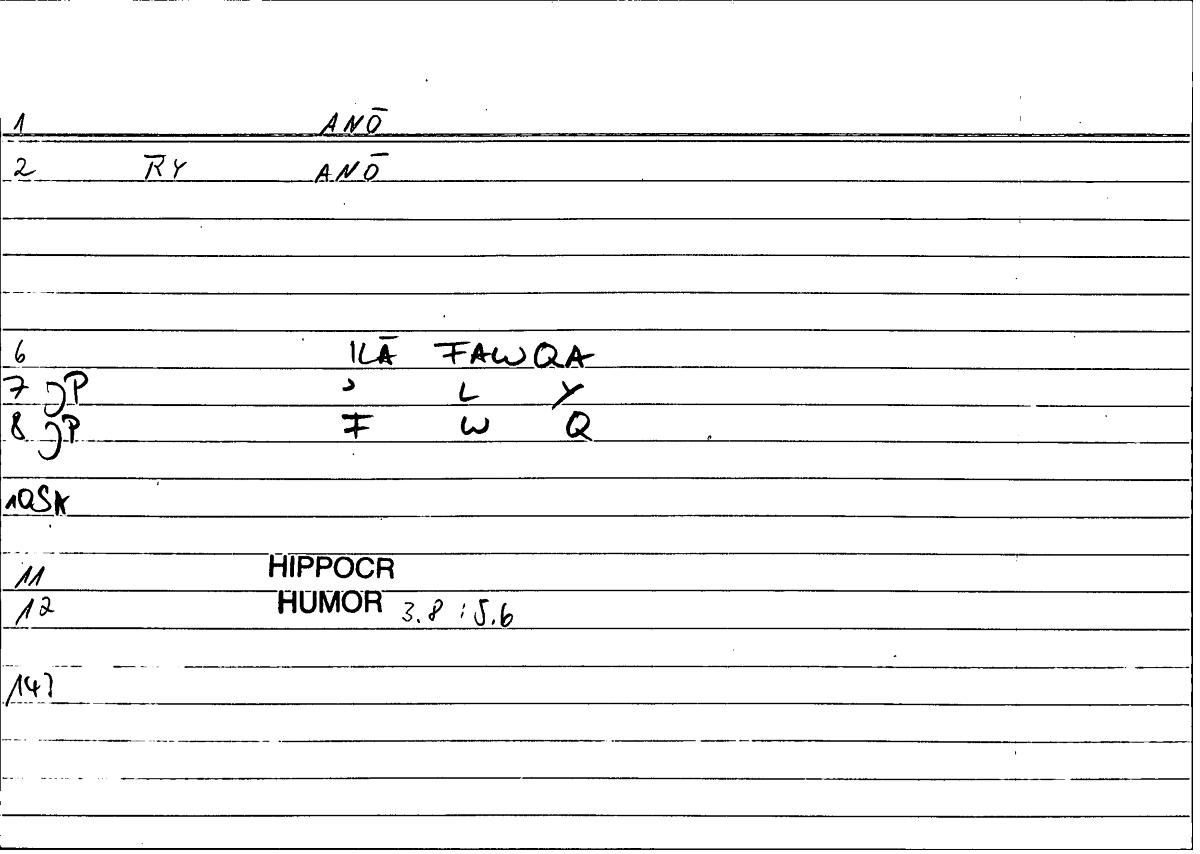 1 ANŌ
2 R̄Y ANŌ
6 ILĀ FAWQA
7 P ʾ L Y
8 P F W Q
10 SK
11 HIPPOCR
12 HUMOR 3.8 ; 5.6
14